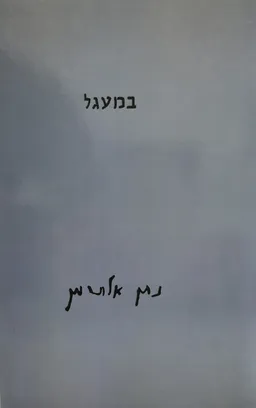 במעגל
נתן אלתרמן